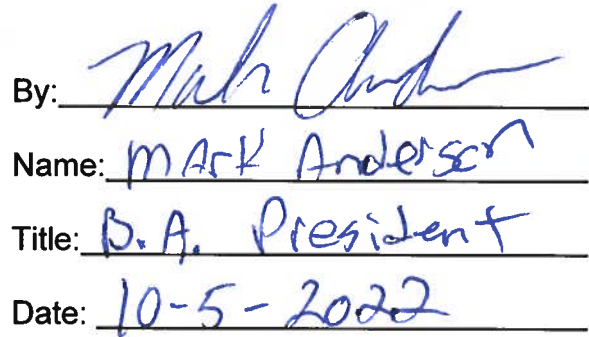 By: Mark Anderson
Name: MArk Anderson
Title: B.A. President
Date: 10-5-2022